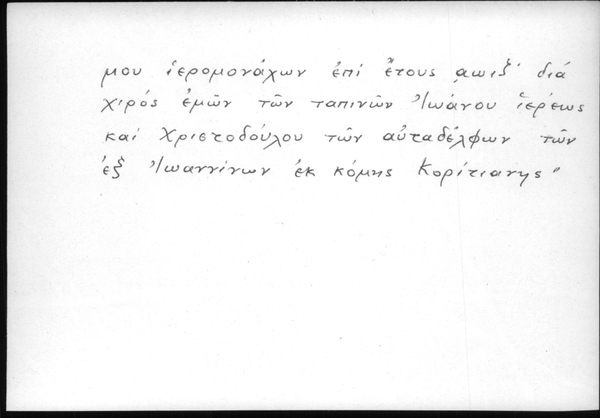 μου ἱερομονάχων ἐπί ἔτους ͵αωιξ' διά
χιρός ἐμῶν τῶν ταπινῶν Ἰωάνου ἱερέως
καί Χριστοδούλου τῶν αὐταδέλφων τῶν
ἐξ Ἰωαννίνων ἐκ κόμης Κορίτιανης"